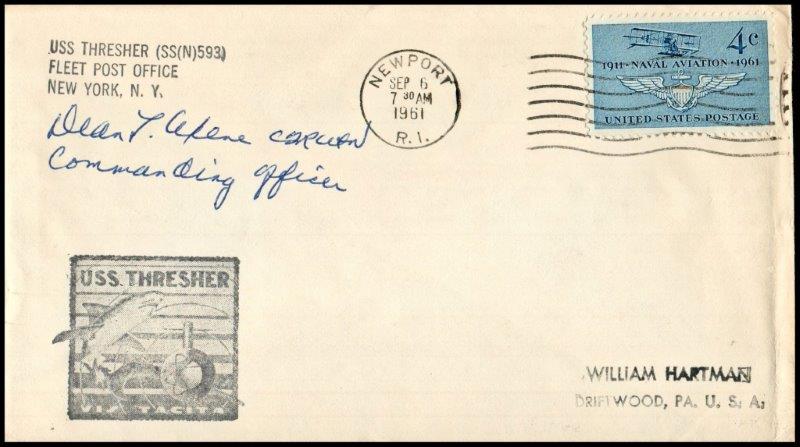 USS THRESHER (SS(N)593)
FLEET POST OFFICE
NEW YORK, N. Y.
Dean L. Axene CDR USN
Commanding Officer
NEWPORT
SEP 6
7 30 AM
1961
R. I.
4c
1911 · NAVAL AVIATION · 1961
UNITED STATES POSTAGE
USS THRESHER
VIS TACITA
WILLIAM HARTMAN
DRIFTWOOD, PA. U. S. A.